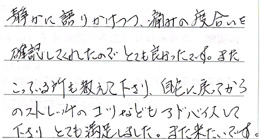 静かに語りかけつつ、痛みの度合いを
確認してくれたのでとても良かったです。また
こっている所も教えて下さり、自宅に戻ってから
のストレッチのコツなどもアドバイスして
下さりとても満足しました。また来たいです。